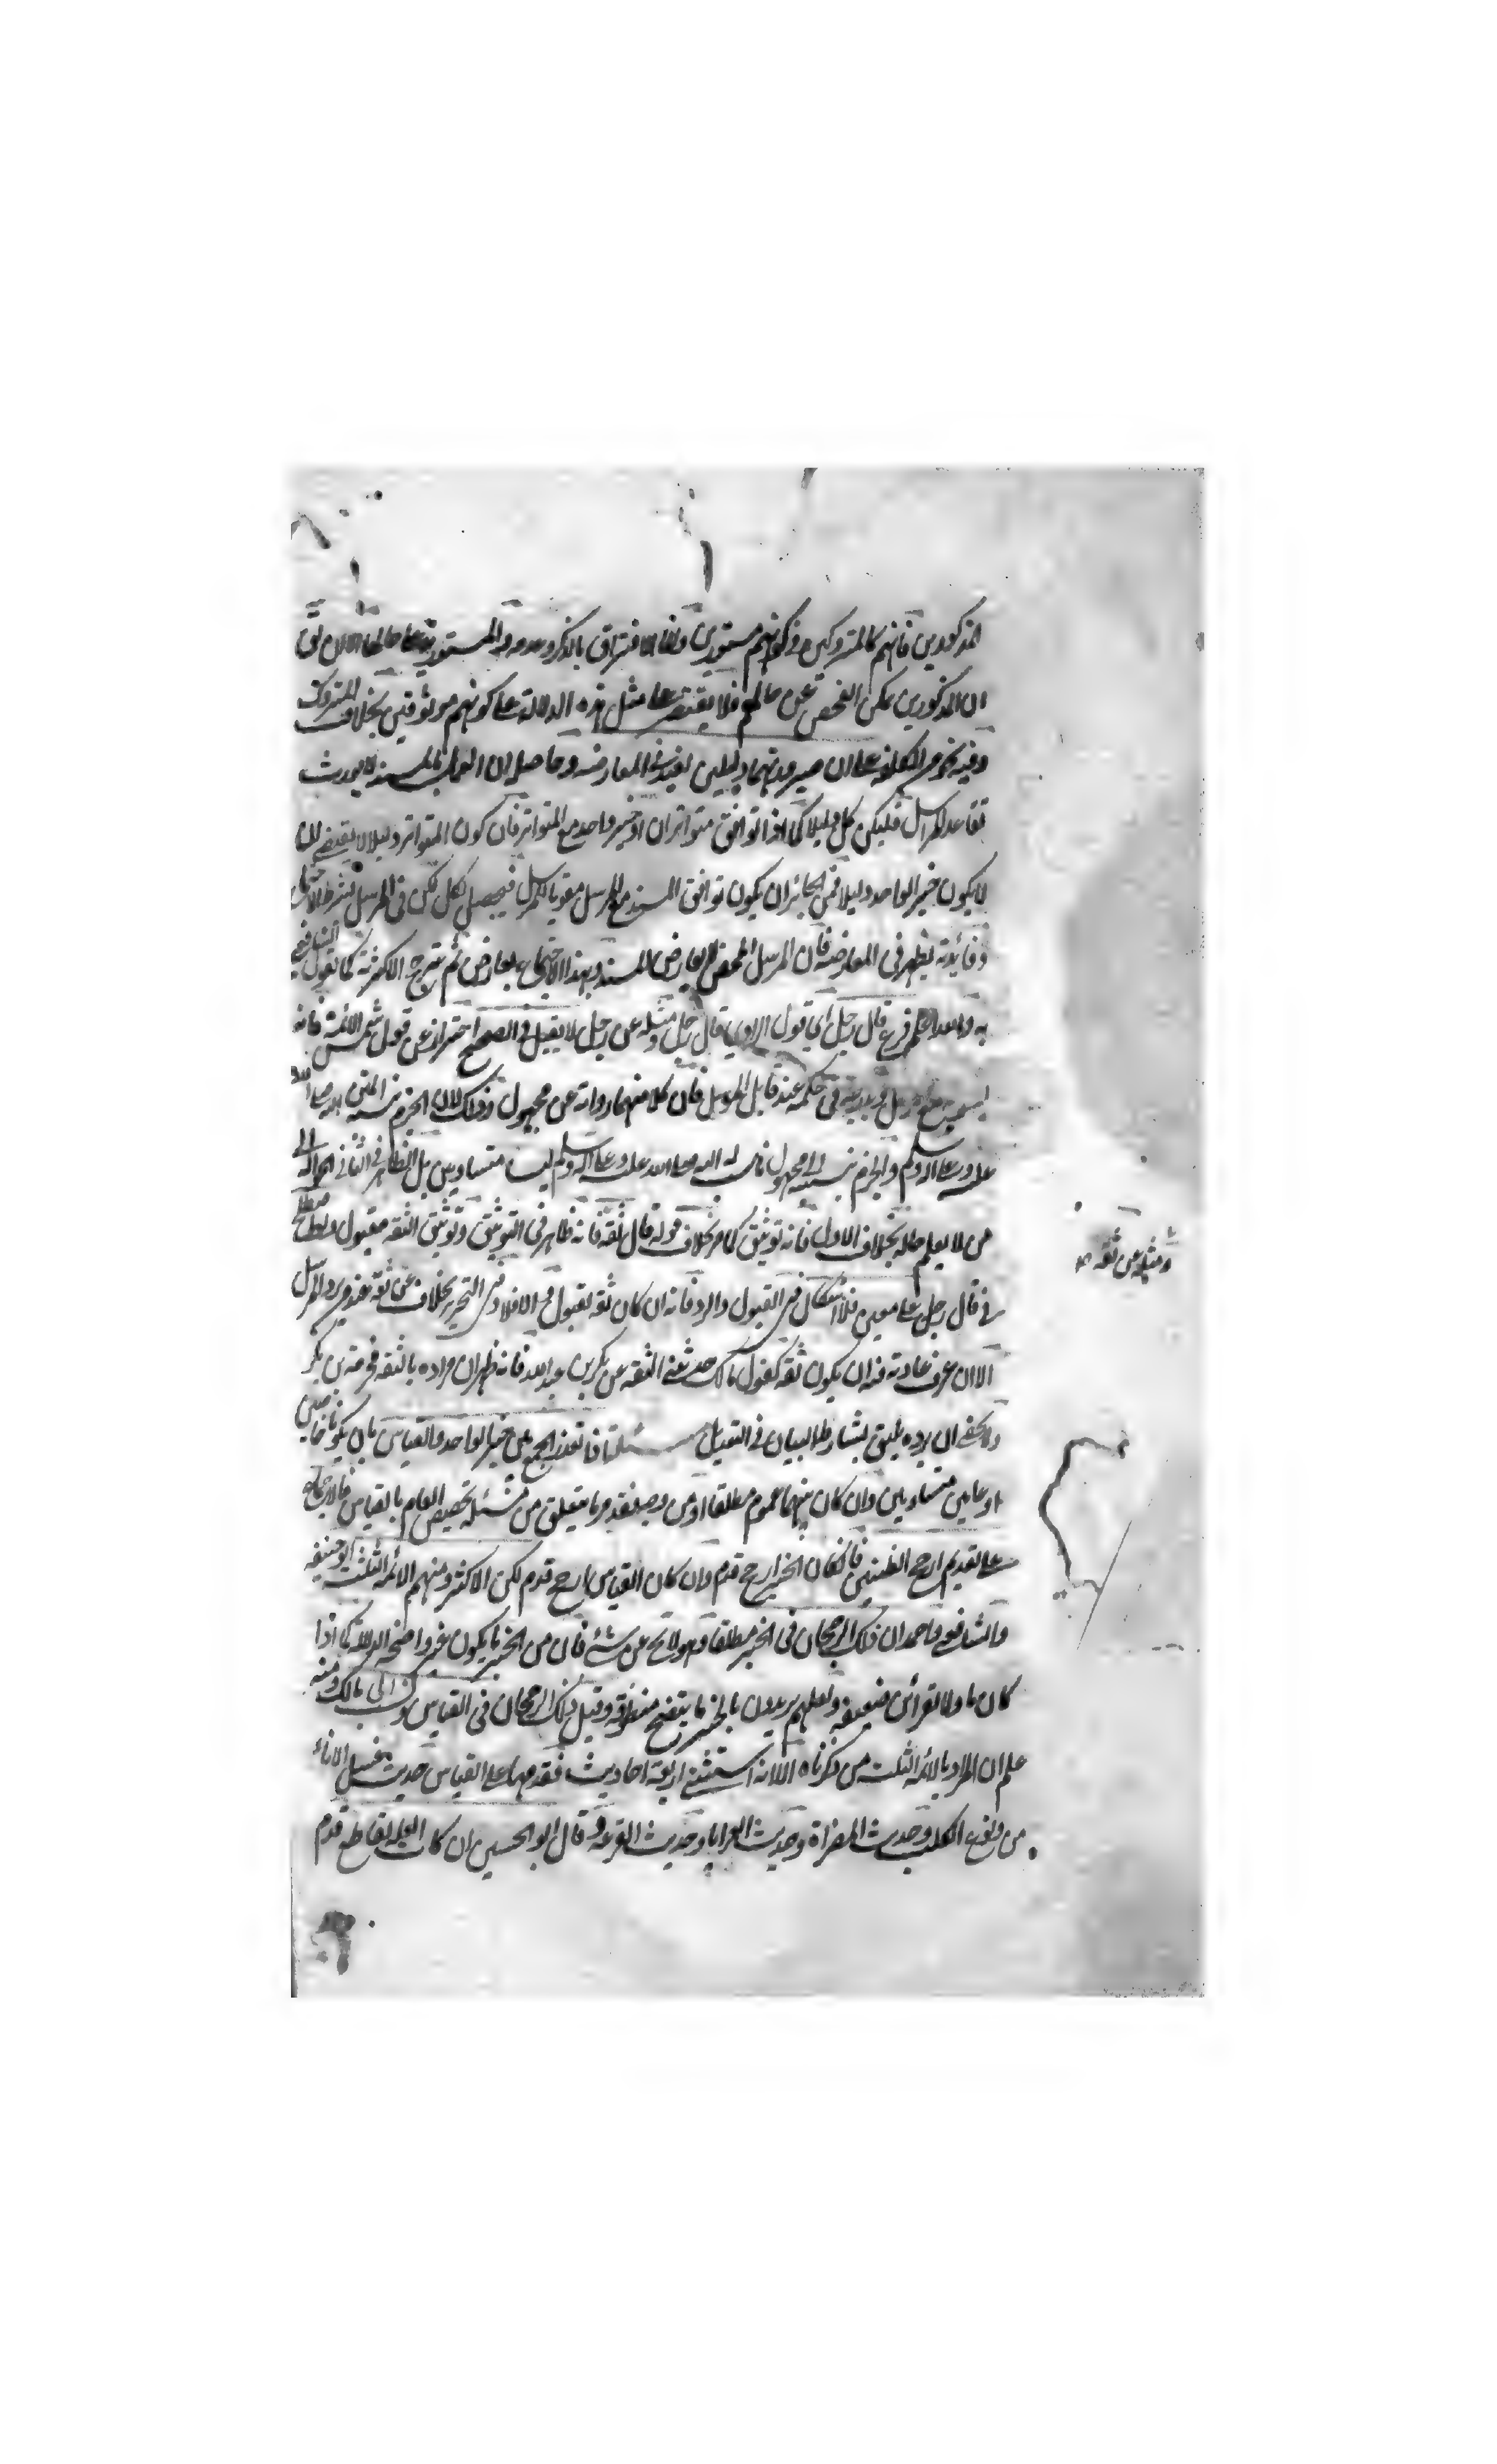 المذكورين فانهم كالمتروكين في كونهم مستورين ولعل الافتراق بالذكر وعدمه والمستور على حالها الا ان يق
ان المذكورين يمكن الفحص عن حالهم فلا يقتصر على مثل هذه الدلالة على كونهم موثوقين بخلاف المتروك
وفيه نحو من الكلفة على ان صيرورتهما دليلين يفيد في المعارضة وحاصله ان العمل بالمسند لا يورث
تقاعد المراسيل فليكن كل دليلا كما اذا توافق متواتران او خبر واحد مع المتواتر فان كون المتواتر دليلا لا يقتضي ان
لا يكون خبر الواحد دليلا فمن الجائز ان يكون توافق المسند مع المرسل مقويا للمرسل فيحصل لكل لكن في المرسل بشرط الاجتماع
وفائدته يظهر في المعارضة فان المرسل المحض لا يعارض المسند وبهذا الاجتماع يعارض ثم يترجح الاكثرية كما يقول الشافعي
به والله اعلم فرع قال رجل اي قول الراوي قال رجل ومثله عن رجل لا يقبل في الصحيح احتراز عن قول شمس الائمة فانه
في حكمه عند قابل المرسل فان كلا منهما رواية عن مجهول وذلك لان الجزم بنسبة المتن اليه صلى الله
عليه وعلى اله وسلم والجزم بنسبته الى مجهول ناسب له اليه صلى الله عليه وعلى اله وسلم ليسا متساويين بل الظاهر في الثاني احالة الى
من لا يعلم حاله بخلاف الاول فانه توثيق كما مر بخلاف قوله قال ثقة فانه ظاهر في التوثيق وتوثيق الثقة مقبول ولو اصطلح
ومثله عن ثقة
في قال رجل على معين فلا اشكال في القبول والرد فانه ان كان ثقة يقبل والا فلا وفي التحرير بخلاف عن ثقة عند من يرد المرسل
الا ان عرف عادته فيه ان يكون ثقة كقول مالك حدثني الثقة عن بكير بن عبد الله فانه ظهر ان مراده بالثقة مخرمة بن بكير
ولا يخفى ان يرده يليق بشارط البيان في التعديل مسئلة اذا تعذر الجمع بين خبر الواحد والقياس بان يكونا خاصين
او عامين متساويين وان كان بينهما عموم مطلقا او من وجه فقد مر ما يتعلق من مسئلة تخصيص العام بالقياس فالاجماع
على تقديم ارجح الظنيين فان كان الخبر ارجح قدم وان كان القياس ارجح قدم لكن الاكثر ومنهم الائمة الثلثة ابو حنيفة
والشافعي واحمد ان ذلك الرجحان في الخبر مطلقا وهو لا يخ عن شئ فان من الخبر ما يكون غير واضح الدلالة كما اذا
كان ماولا بقرائن ضعيفة ولعلهم يريدون بالخبر ما يتضح منطوقه وقيل ذلك الرجحان في القياس ونسب الى مالك ومنه
علم ان المراد بالائمة الثلثة من ذكرناه الا انه استثنى اربعة احاديث فقدمها على القياس حديث غسل الاناء
من ولوغ الكلب وحديث المصراة وحديث العرايا وحديث القرعة وقال ابو الحسين ان كانت العلة بقاطع قدم